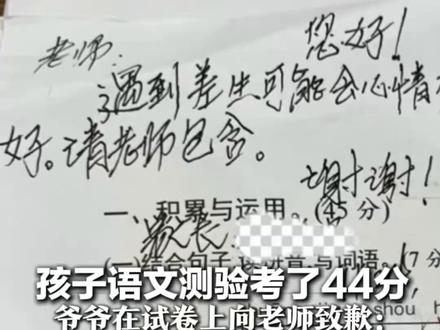 老师：
您好！
遇到差生可能会心情
好。请老师包含。
谢谢！
一、积累与运用。(45 分)
家长
(一)结合句子,读拼音,写词语。(7 分
孩子语文测验考了44分
爷爷在试卷上向老师致歉：
shou